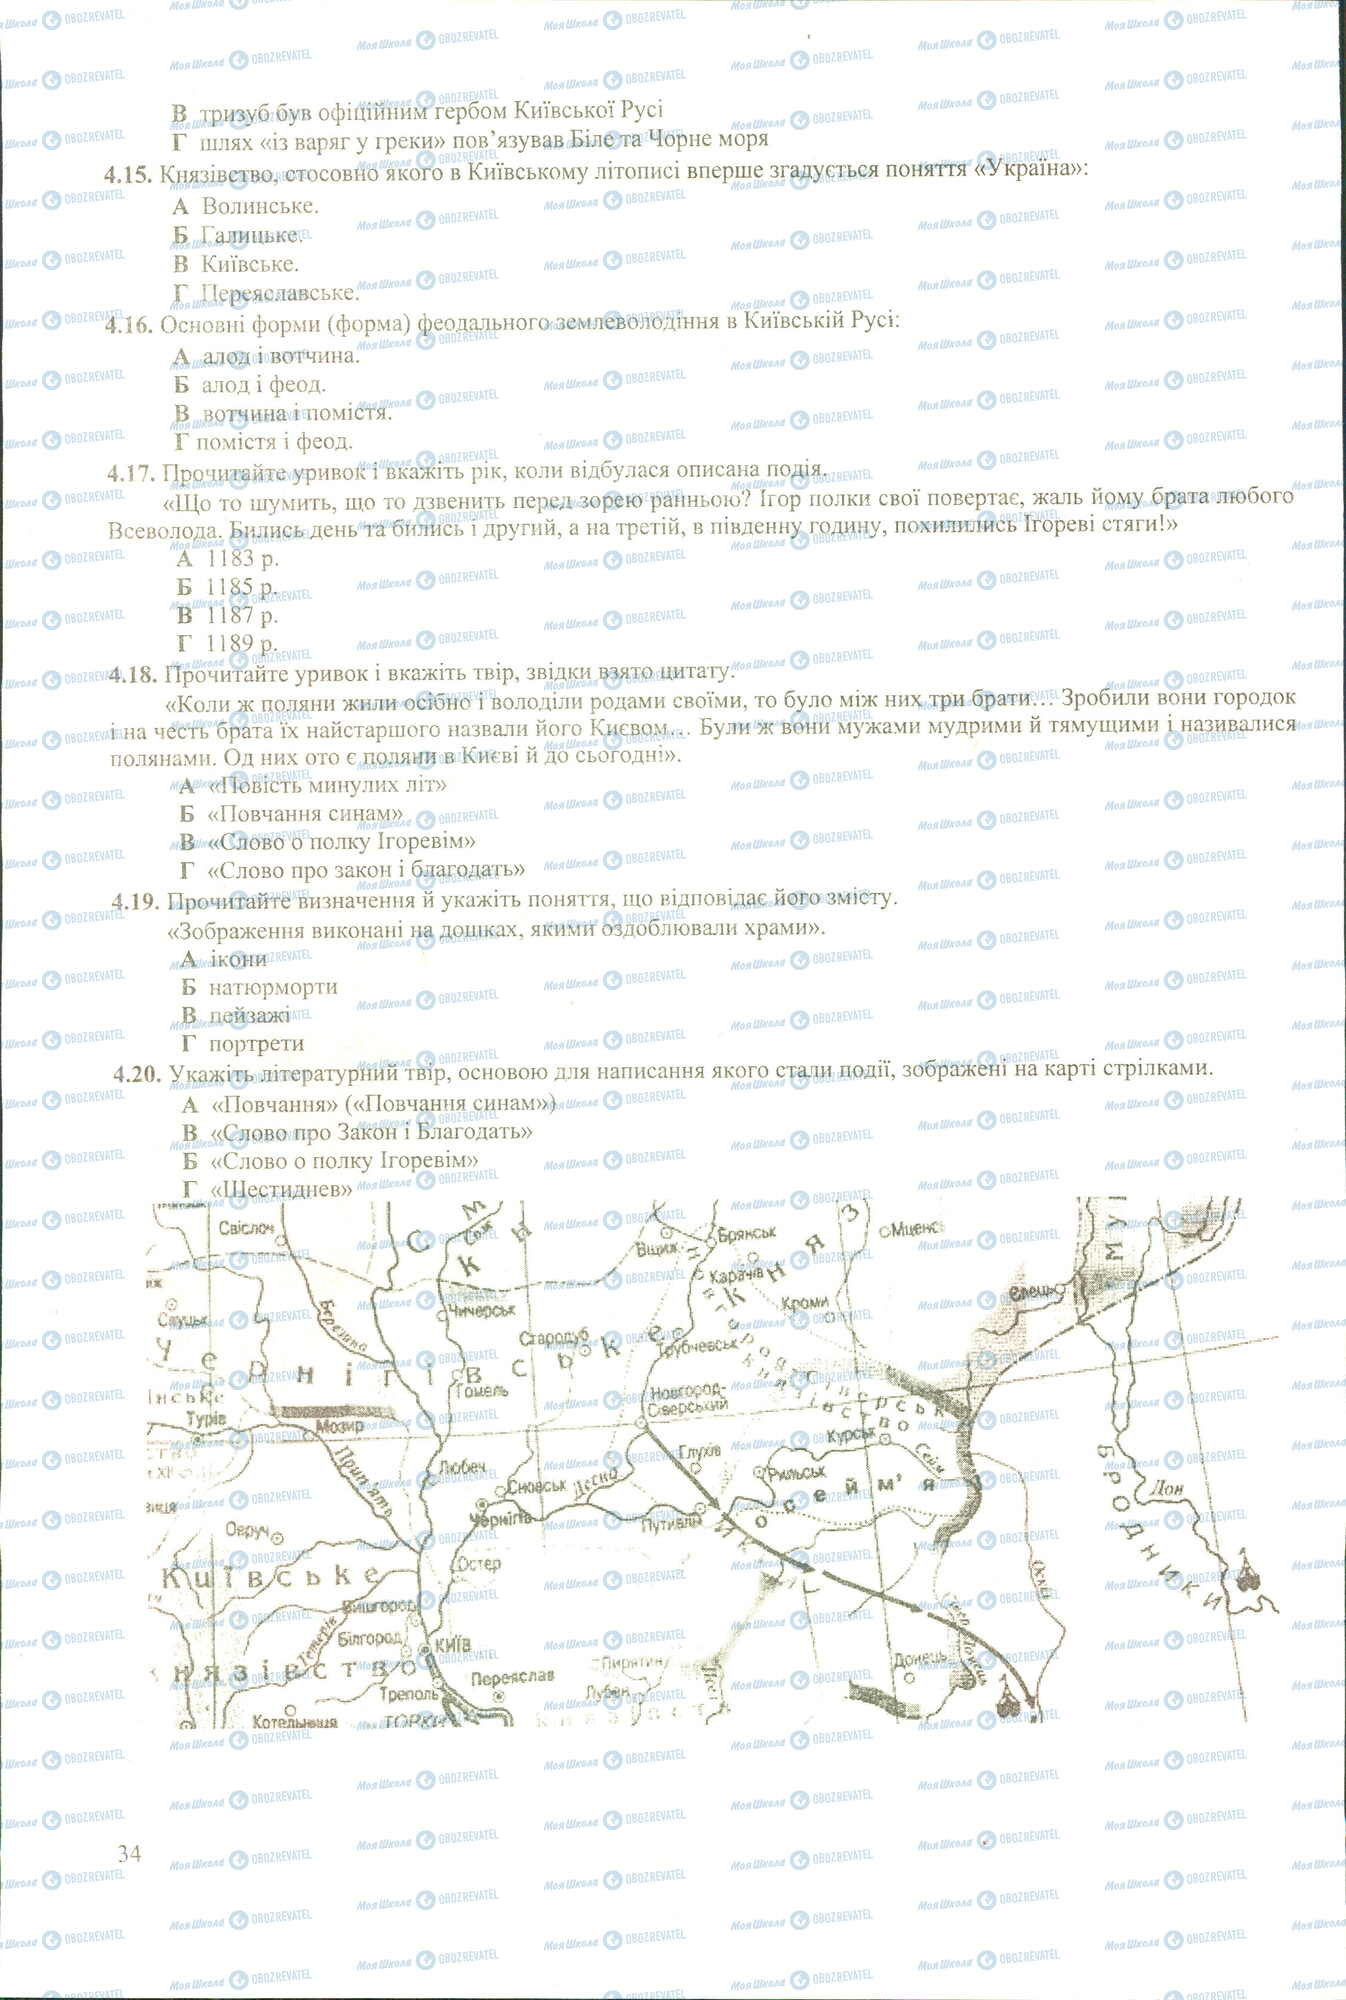 В тризуб був офіційним гербом Київської Русі
Г шлях «із варяг у греки» пов’язував Біле та Чорне моря
4.15. Князівство, стосовно якого в Київському літописі вперше згадується поняття «Україна»:
А Волинське.
Б Галицьке.
В Київське.
Г Переяславське.
4.16. Основні форми (форма) феодального землеволодіння в Київській Русі:
А алод і вотчина.
Б алод і феод.
В вотчина і помістя.
Г помістя і феод.
4.17. Прочитайте уривок і вкажіть рік, коли відбулася описана подія.
«Що то шумить, що то дзвенить перед зорею ранньою? Ігор полки свої повертає, жаль йому брата любого
Всеволода. Бились день та бились і другий, а на третій, в південну годину, похилились Ігореві стяги!»
А 1183 р.
Б 1185 р.
В 1187 р.
Г 1189 р.
4.18. Прочитайте уривок і вкажіть твір, звідки взято цитату.
«Коли ж поляни жили осібно і володіли родами своїми, то було між них три брати… Зробили вони городок
і на честь брата їх найстаршого назвали його Києвом… Були ж вони мужами мудрими й тямущими і називалися
полянами. Од них ото є поляни в Києві й до сьогодні».
А «Повість минулих літ»
Б «Повчання синам»
В «Слово о полку Ігоревім»
Г «Слово про закон і благодать»
4.19. Прочитайте визначення й укажіть поняття, що відповідає його змісту.
«Зображення виконані на дошках, якими оздоблювали храми».
А ікони
Б натюрморти
В пейзажі
Г портрети
4.20. Укажіть літературний твір, основою для написання якого стали події, зображені на карті стрілками.
А «Повчання» («Повчання синам»)
В «Слово про Закон і Благодать»
Б «Слово о полку Ігоревім»
Г «Шестиднев»
Свіслоч
Вщиж
Брянськ
Мценс
Карачів
Кроми
Єлець
Слуцьк
Березина
Чичерськ
Стародуб
Трубчевськ
Чернігівське
Гомель
Новгород-
Сіверський
Турів
Мозир
Прип'ять
Любеч
Сновськ
Десна
Глухів
Курськ
Сейм
Рильськ
Посейм'я
Чернігів
Путивль
Дон
БРОДНИКИ
Овруч
Остер
Київське
Вишгород
Білгород
Тетерів
КИЇВ
князівство
Треполь
Переяслав
Пирятин
Лубен
Донець
Оскіл
Котельниця
ТОРКИ
34